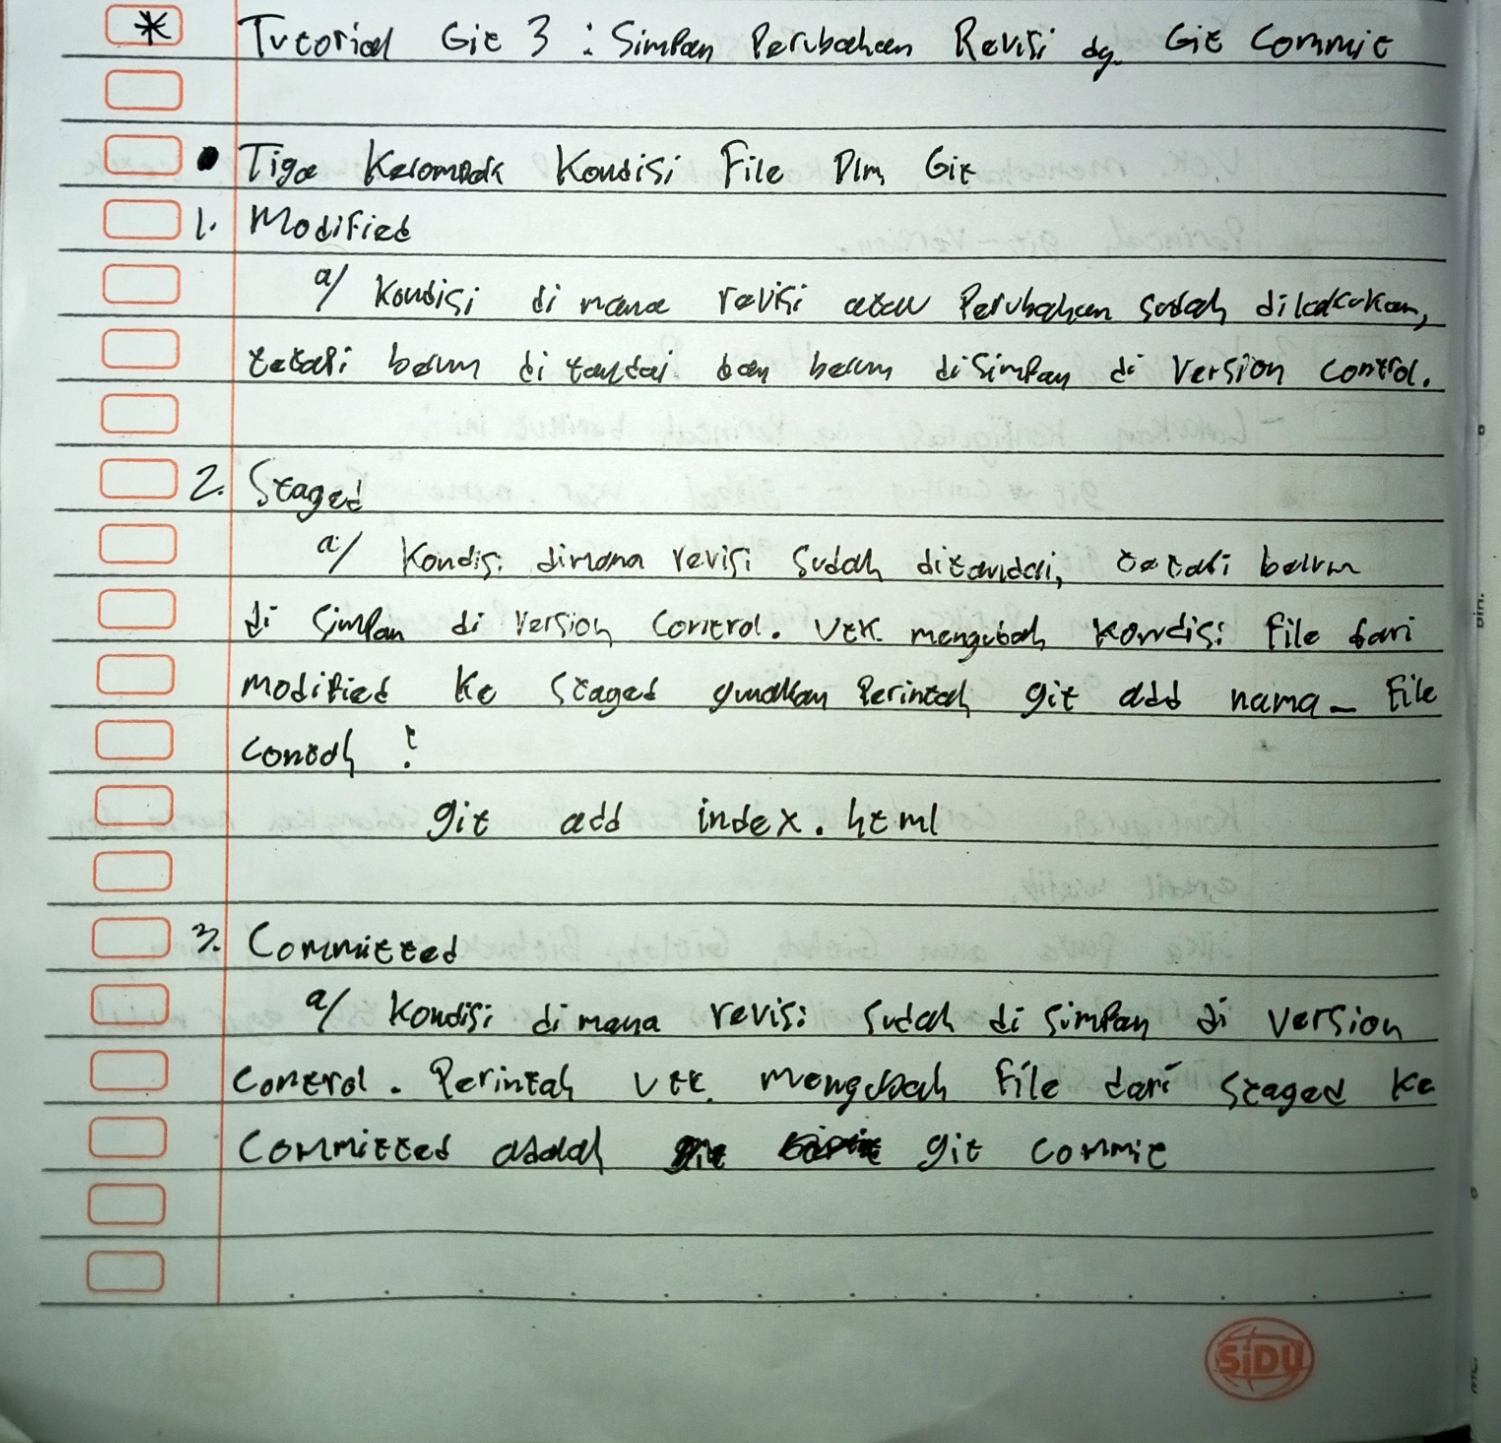 * Tutorial Git 3 : Simpan Perubahan Revisi dg. Git Commit
• Tiga Kelompok Kondisi File Dlm Git
1. Modified
a/ Kondisi di mana revisi atau Perubahan sudah dilakukan,
tetapi belum di tandai dan belum disimpan di Version control.
2. Staged
a/ Kondisi dimana revisi Sudah ditandai, tetapi belum
di simpan di Version Control. Utk. mengubah kondisi file dari
modified ke Staged gunakan Perintah git add nama_file
Contoh :
git add index.html
3. Committed
a/ Kondisi di mana revisi Sudah di simpan di version
Control. Perintah utk. mengubah file dari Staged ke
Committed adalah git commit
SiDU